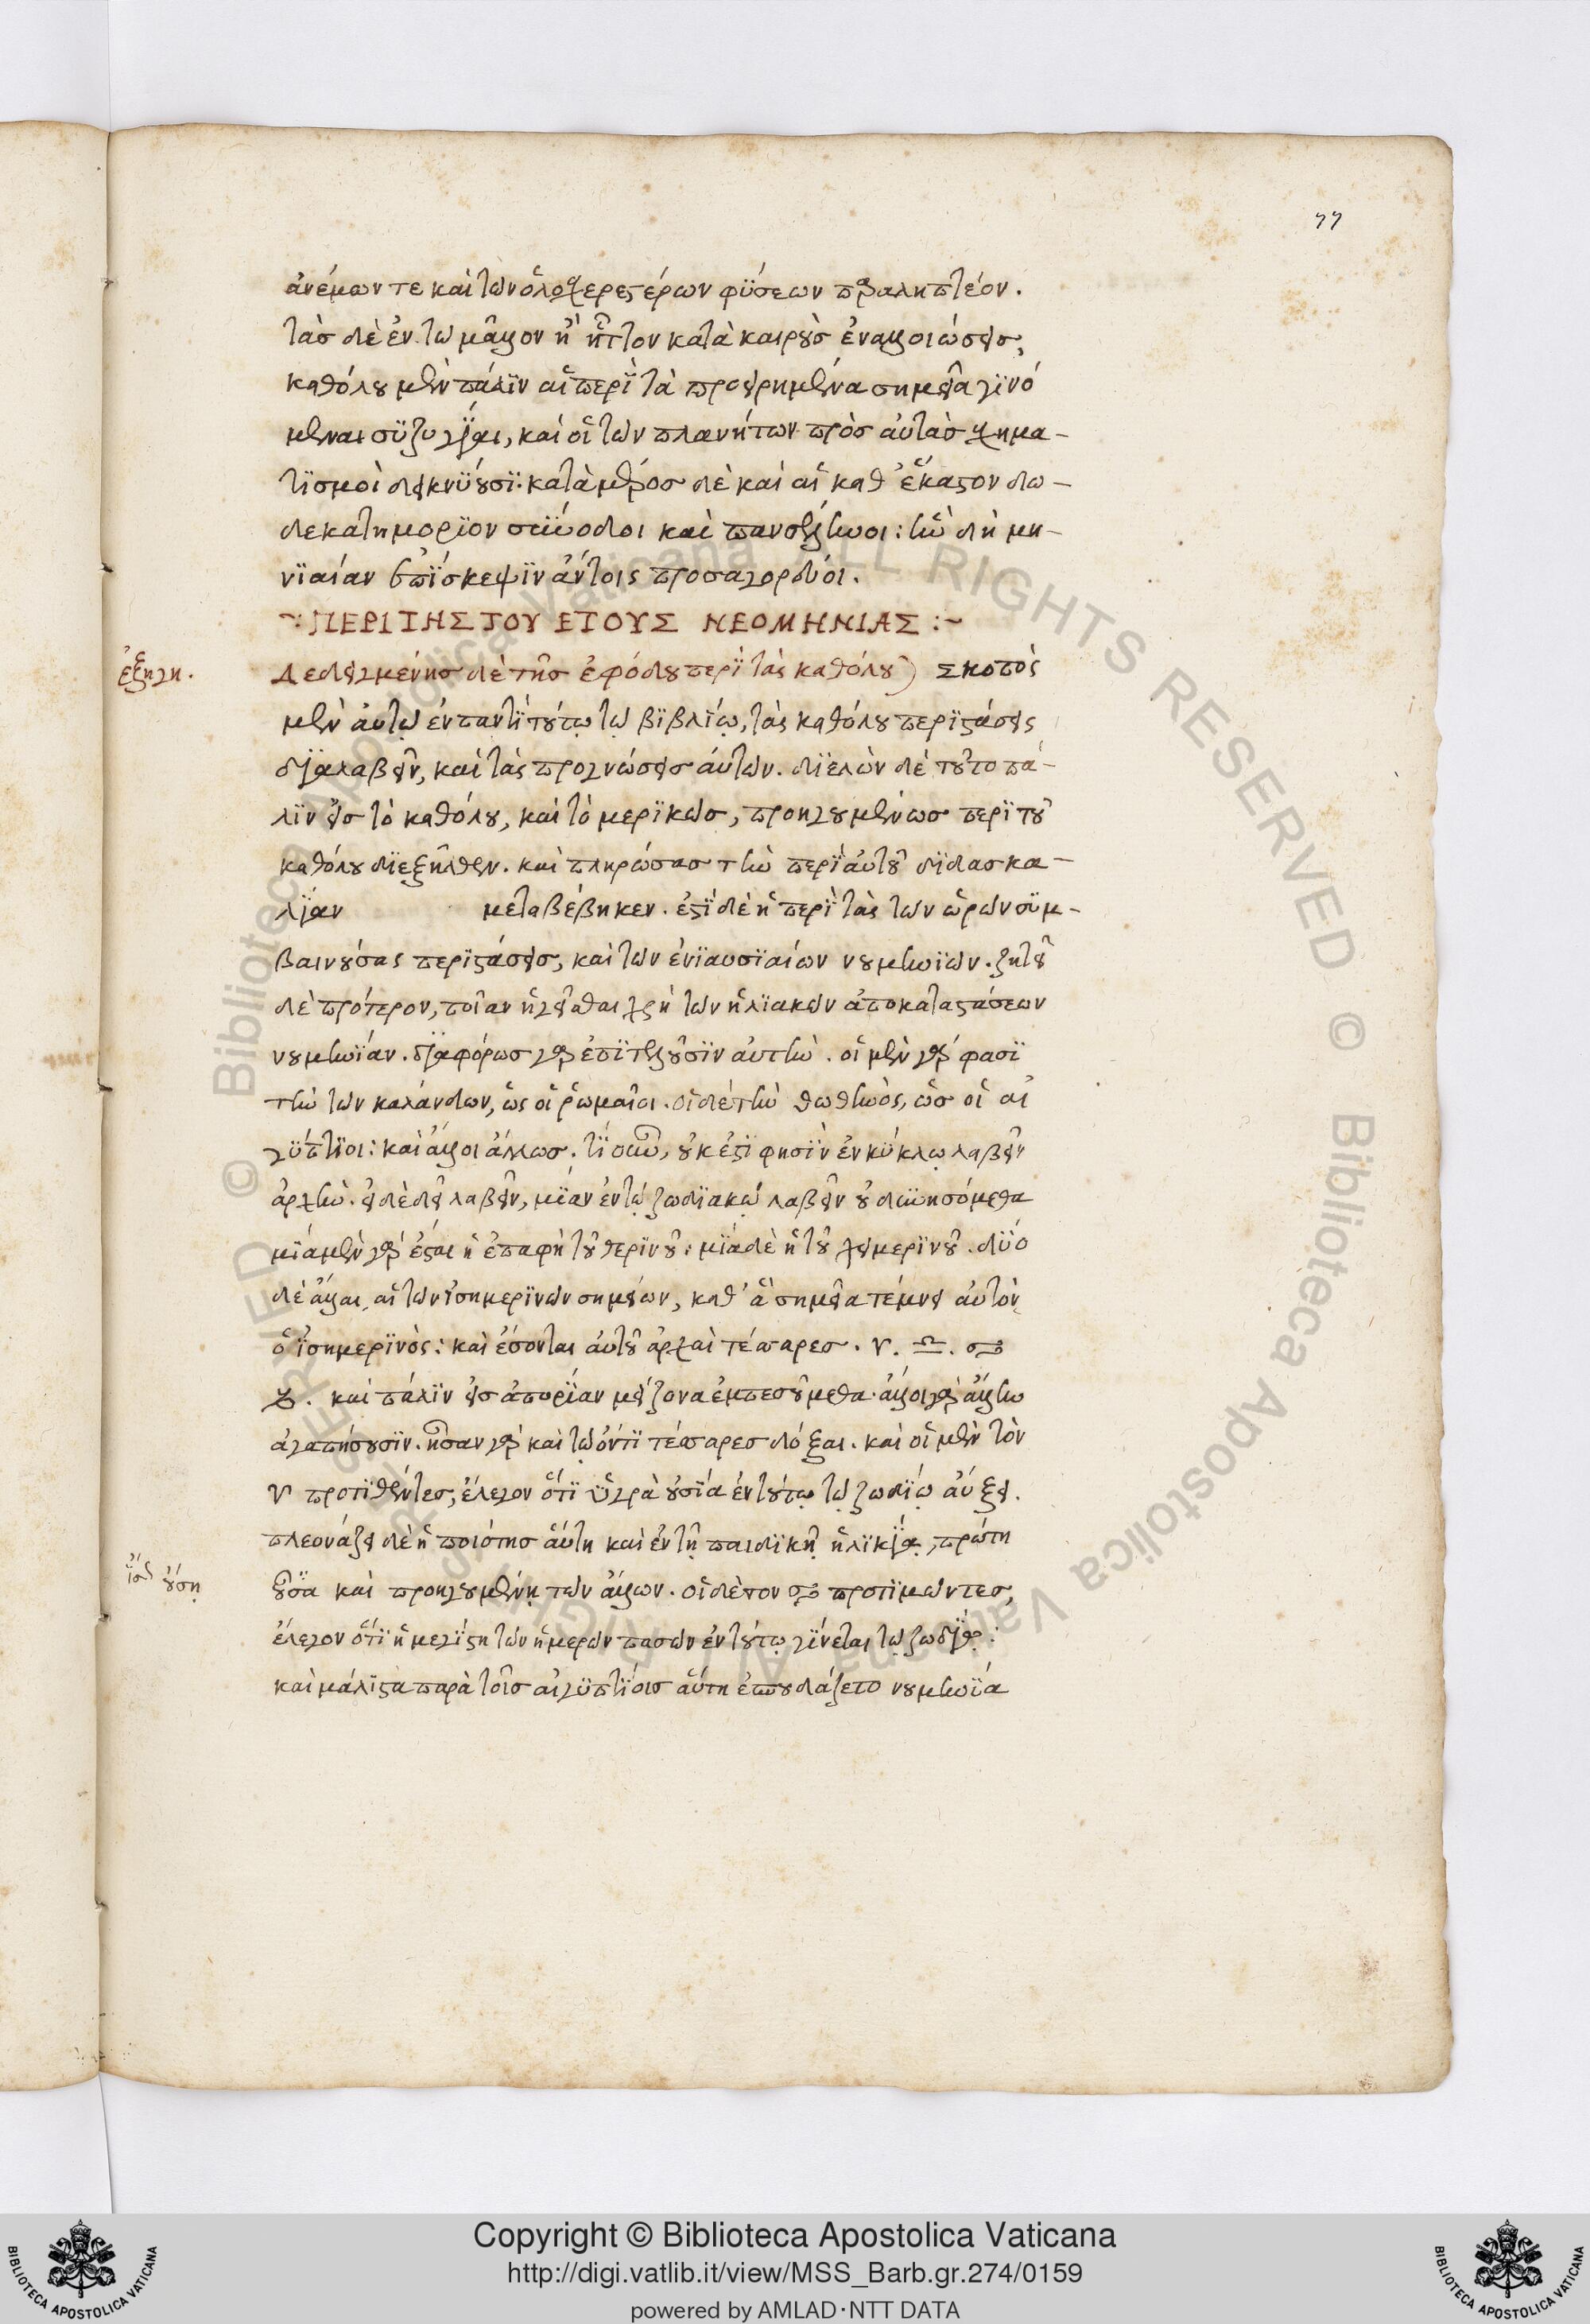 77
ἀνέμων τε καὶ τῶν ὁλοσχερεστέρων φύσεων παραληπτέον.
τὰσ δὲ ἐν τῶ μᾶλλον ἢ ἧττον κατὰ καιροὺσ ἐναλλοιώσεισ,
καθόλου μὲν πάλιν αἱ περὶ τὰ προειρημένα σημεῖα γινό
μεναι συζυγίαι, καὶ οἱ τῶν πλανήτων πρὸσ αὐτὰσ σχημα-
τισμοὶ δεικνύουσι: κατὰ μέροσ δὲ καὶ αἱ καθ' ἕκαστον δω-
δεκατημόριον σύνοδοι καὶ πανσέληνοι: ἣν δὴ μη-
νιαίαν ἐπίσκεψιν ἄν τοις προσαγορεύοι.
~: ΠΕΡΙ ΤΗΣ ΤΟΥ ΕΤΟΥΣ ΝΕΟΜΗΝΙΑΣ :~
ἐξηγη.
Δεδειγμένησ δὲ τῆσ ἐφόδου περὶ τὰς καθόλου) Σκοπὸς
μὲν αὐτῷ ἐν παντὶ τούτῳ τῷ βιβλίῳ, τὰς καθόλου περιστάσεις
διαλαβεῖν, καὶ τὰς προγνώσεισ αὐτῶν. διελὼν δὲ τοῦτο πά-
λιν εἰσ τὸ καθόλου, καὶ τὸ μερικῶσ, προηγουμένωσ περὶ τοῦ
καθόλου διεξῆλθεν. καὶ πληρώσασ τὴν περὶ αὐτοῦ διδασκα-
λίαν μεταβέβηκεν. ἐστὶ δὲ ἡ περὶ τὰς τῶν ὡρῶν συμ-
βαινούσας περιστάσεισ, καὶ τῶν ἐνιαυσιαίων νουμηνιῶν. ζητεῖ
δὲ πρότερον, ποῖαν ἡγεῖσθαι χρὴ τῶν ἡλιακῶν ἀποκαταστάσεων
νουμηνίαν. διαφόρωσ γὰρ ἐπιτελοῦσιν αὐτὴν. οἱ μὲν γὰρ φασὶ
τὴν τῶν καλάνδων, ὥς οἱ ῥωμαῖοι. οἱ δὲ τὴν θωθηνὸς, ὥσ οἱ αἰ
γύπτιοι: καὶ ἄλλοι ἄλλωσ. τί οὖν, οὐκ ἐστὶ φησὶν ἐν κύκλῳ λαβεῖν
ἀρχὴν. εἰ δὲ δεῖ λαβεῖν, μίαν ἐν τῷ ζωδιακῷ λαβεῖν οὐ δυνησόμεθα
μία μὲν γὰρ ἔσται ἡ ἐπαφὴ τοῦ θερινοῦ: μία δὲ ἡ τοῦ χειμερινοῦ. δύο
δὲ ἄλλαι, αἱ τῶν ἰσημερινῶν σημείων, καθ' ἃ σημεῖα τέμνει αὐτὸν
ὁ ἰσημερινὸς: καὶ ἔσονται αὐτοῦ ἀρχαὶ τέσσαρεσ. ♈. ♎. ♋
♑. καὶ πάλιν εἰσ ἀπορίαν μείζονα ἐμπεσούμεθα. ἄλλοι γὰρ ἄλλην
ἀγαπήσουσιν. ἦσαν γὰρ καὶ τῷ ὄντι τέσσαρεσ δόξαι. καὶ οἱ μὲν τὸν
♈ προτιθέντεσ, ἔλεγον ὅτι ὑγρὰ οὐσία ἐν τούτῳ τῷ ζωδίῳ αὔξει.
πλεονάζει δὲ ἡ ποιότησ αὕτη καὶ ἐν τῇ παιδικῇ ἡλικίᾳ, πρώτη
ἴσ οὔσῃ
οὖσα καὶ προηγουμένῃ τῶν ἄλλων. οἱ δὲ τὸν ♋ προτιμῶντεσ,
ἔλεγον ὅτι ἡ μεγίστη τῶν ἡμερῶν πασῶν ἐν τούτῳ γίνεται τῷ ζωδίῳ:
καὶ μάλιστα παρὰ τοῖσ αἰγυπτίοισ αὕτη ἐσπουδάζετο νουμηνία
Copyright © Biblioteca Apostolica Vaticana
http://digi.vatlib.it/view/MSS_Barb.gr.274/0159
powered by AMLAD·NTT DATA